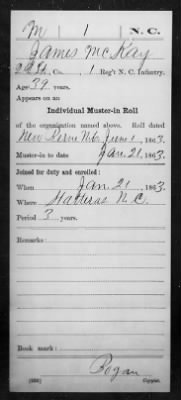 M 1 N.C.
James McKay
Co., 1 Reg't N. C. Infantry.
Age 39 years.
Appears on an
Individual Muster-in Roll
of the organization named above. Roll dated
New Berne N.C. June 1, 1863.
Muster-in to date Jan. 21, 1863.
Joined for duty and enrolled:
When Jan. 21, 1863.
Where Hatteras N.C.
Period 3 years.
Remarks:
Book mark:
Bogan
Copyist.